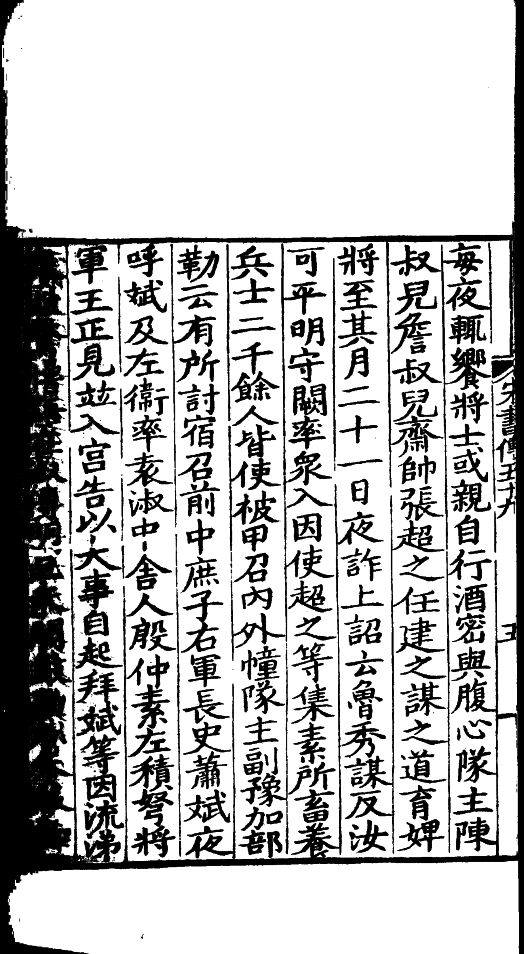 宋書傳五九　五
每夜輒饗將士或親自行酒密與腹心隊主陳
叔兒詹叔兒齋帥張超之任建之謀之道育婢
將至其月二十一日夜詐上詔云魯秀謀反汝
可平明守闕率衆入因使超之等集素所畜養
兵士二千餘人皆使被甲召內外幢隊主副豫加部
勒云有所討宿召前中庶子右軍長史蕭斌夜
呼斌及左衞率袁淑中舍人殷仲素左積弩將
軍王正見並入宮告以大事自起拜斌等因流涕